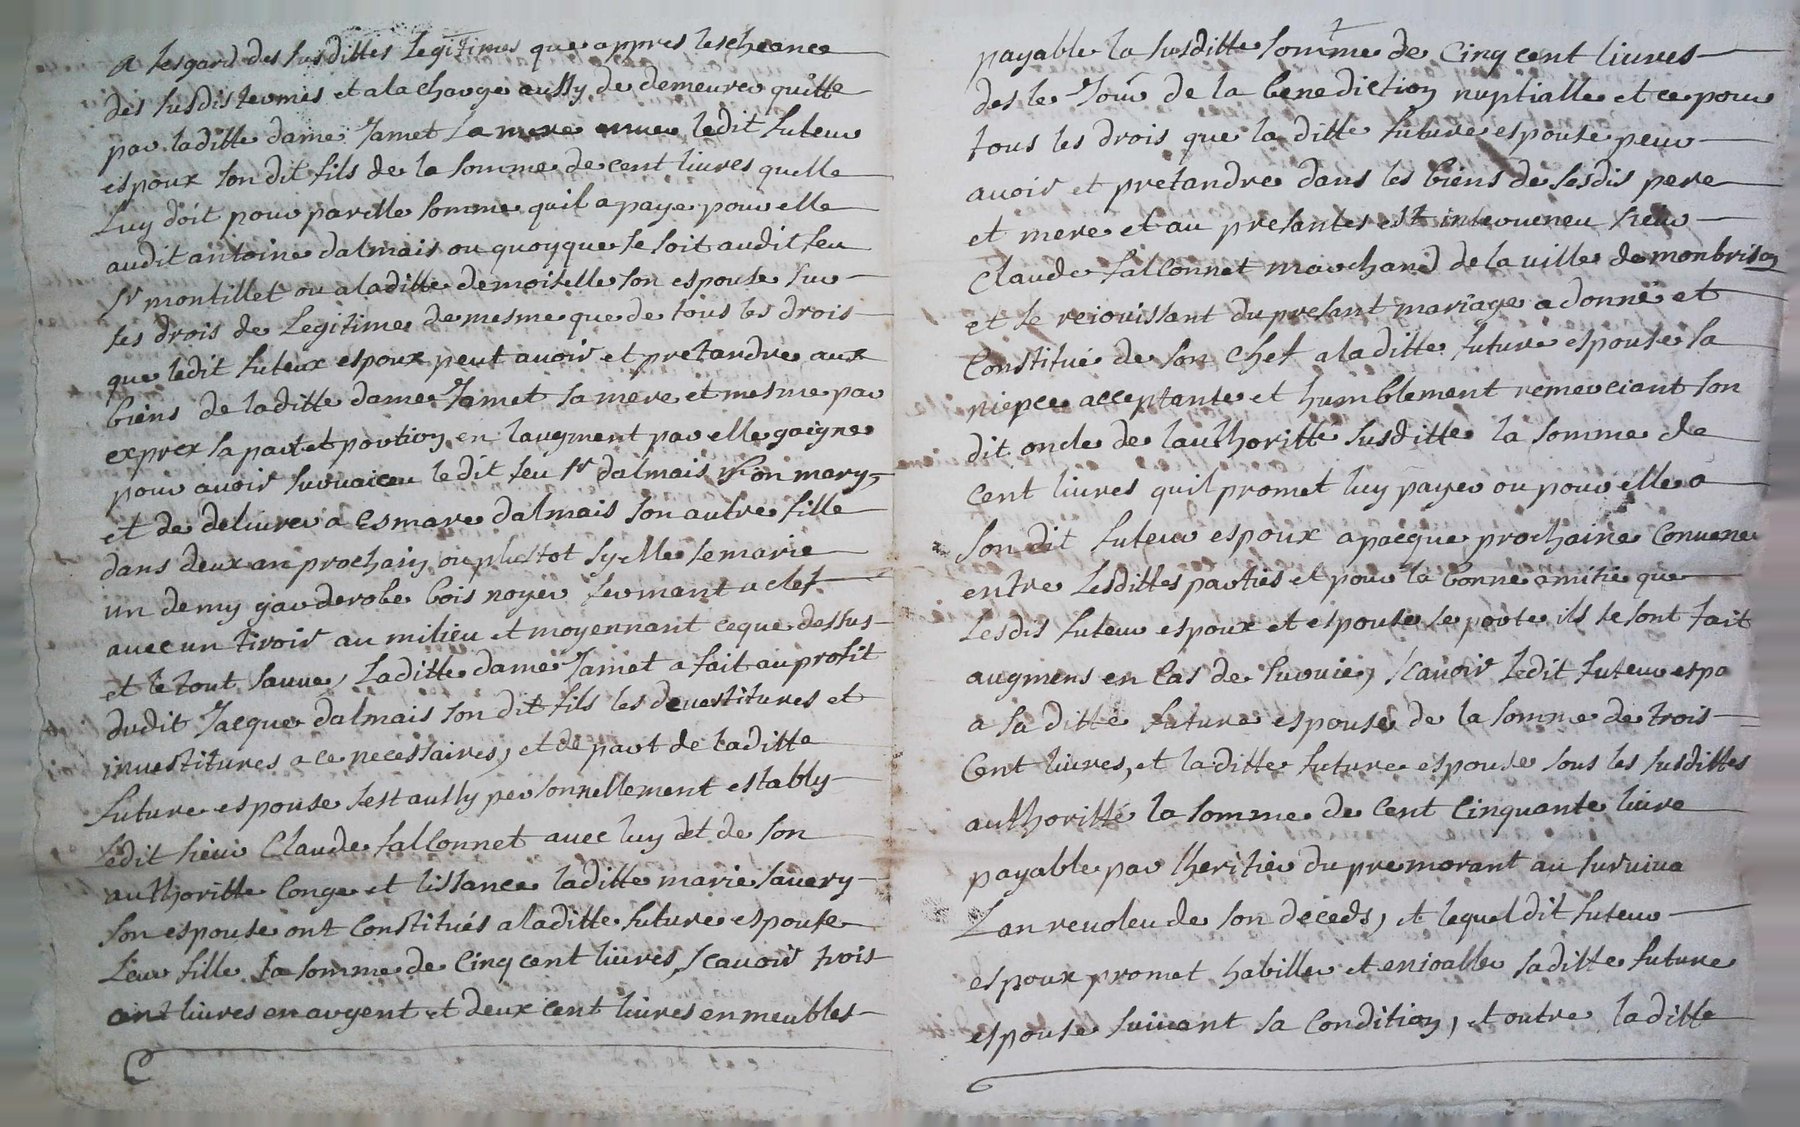 a lesgard des susdittes legitimes que appres lescheance
des susdis termes et a la charge aussy de demeurer quitte
par laditte dame Jamet sa mere ledit futeur
espoux son dit fils de la somme de cent livres quelle
luy doit pour pareille somme quil a paye pour elle
audit antoine dalmais ou quoyque se soit audit feu
sr montillet ou a laditte demoiselle son espouse sur
les drois de legitime de mesme que de tous les drois
que ledit futeux espoux peut avoir et pretandre aux
biens de laditte dame Jamet sa mere et mesme par
exprex sa part et portion en laugment par elle gaigne
pour avoir survaiceu ledit feu sr dalmais son mary,
et de delivrer a esmare dalmais son autre fille
dans deux an prochain ou plustot sy elle se marie
un demy garderobe bois noyer fermant a clef
avec un tiroir au milieu et moyennant ce que dessus
et le tout sauve, laditte dame Jamet a fait au profit
dudit Jacque dalmais son dit fils les devestitures et
investitures a ce necessaires, et de part de laditte
future espouse sest aussy personnellement estably
ledit sieur Claude fallconnet avec luy et de son
authoritte conge et lissance laditte marie savery
son espouse ont constitués a laditte future espouse
leur fille la somme de cinq cent livres scavoir trois
cent livres en argent et deux cent livres en meubles
payable la susditte somme de cinq cent livres
des le Jour de la benediction nuptialle et ce pour
tous les drois que la ditte future espouse peur
avoir et pretandre dans les biens de sesdis pere
et mere et au presantes est interveneu sieur
claude fallconnet marchand de la ville de monbrison
et se reiouissant du presant mariage a donné et
constitué de son chef a laditte future espouse sa
niepce acceptante et humblement remerciant son
dit oncle de lauthoritte susditte la somme de
cent livres quil promet luy payer ou pour elle a
son dit futeur espoux a pacque prochaine convene
entre lesdittes parties et pour la bonne amitie que
lesdis futeur espoux et espouse se porte ils se sont fait
augmens en cas de survie, scavoir ledit futeur espo
a sa ditte future espouse de la somme de trois
cent livres, et laditte future espouse sous les susdittes
authoritté la somme de cent cinquante livre
payable par lheritier du premorant au surviva
Lan revoleu de son deceds, et lequel dit futeur
espoux promet habiller et enioaller saditte future
espouse suivant sa condition, et outre laditte